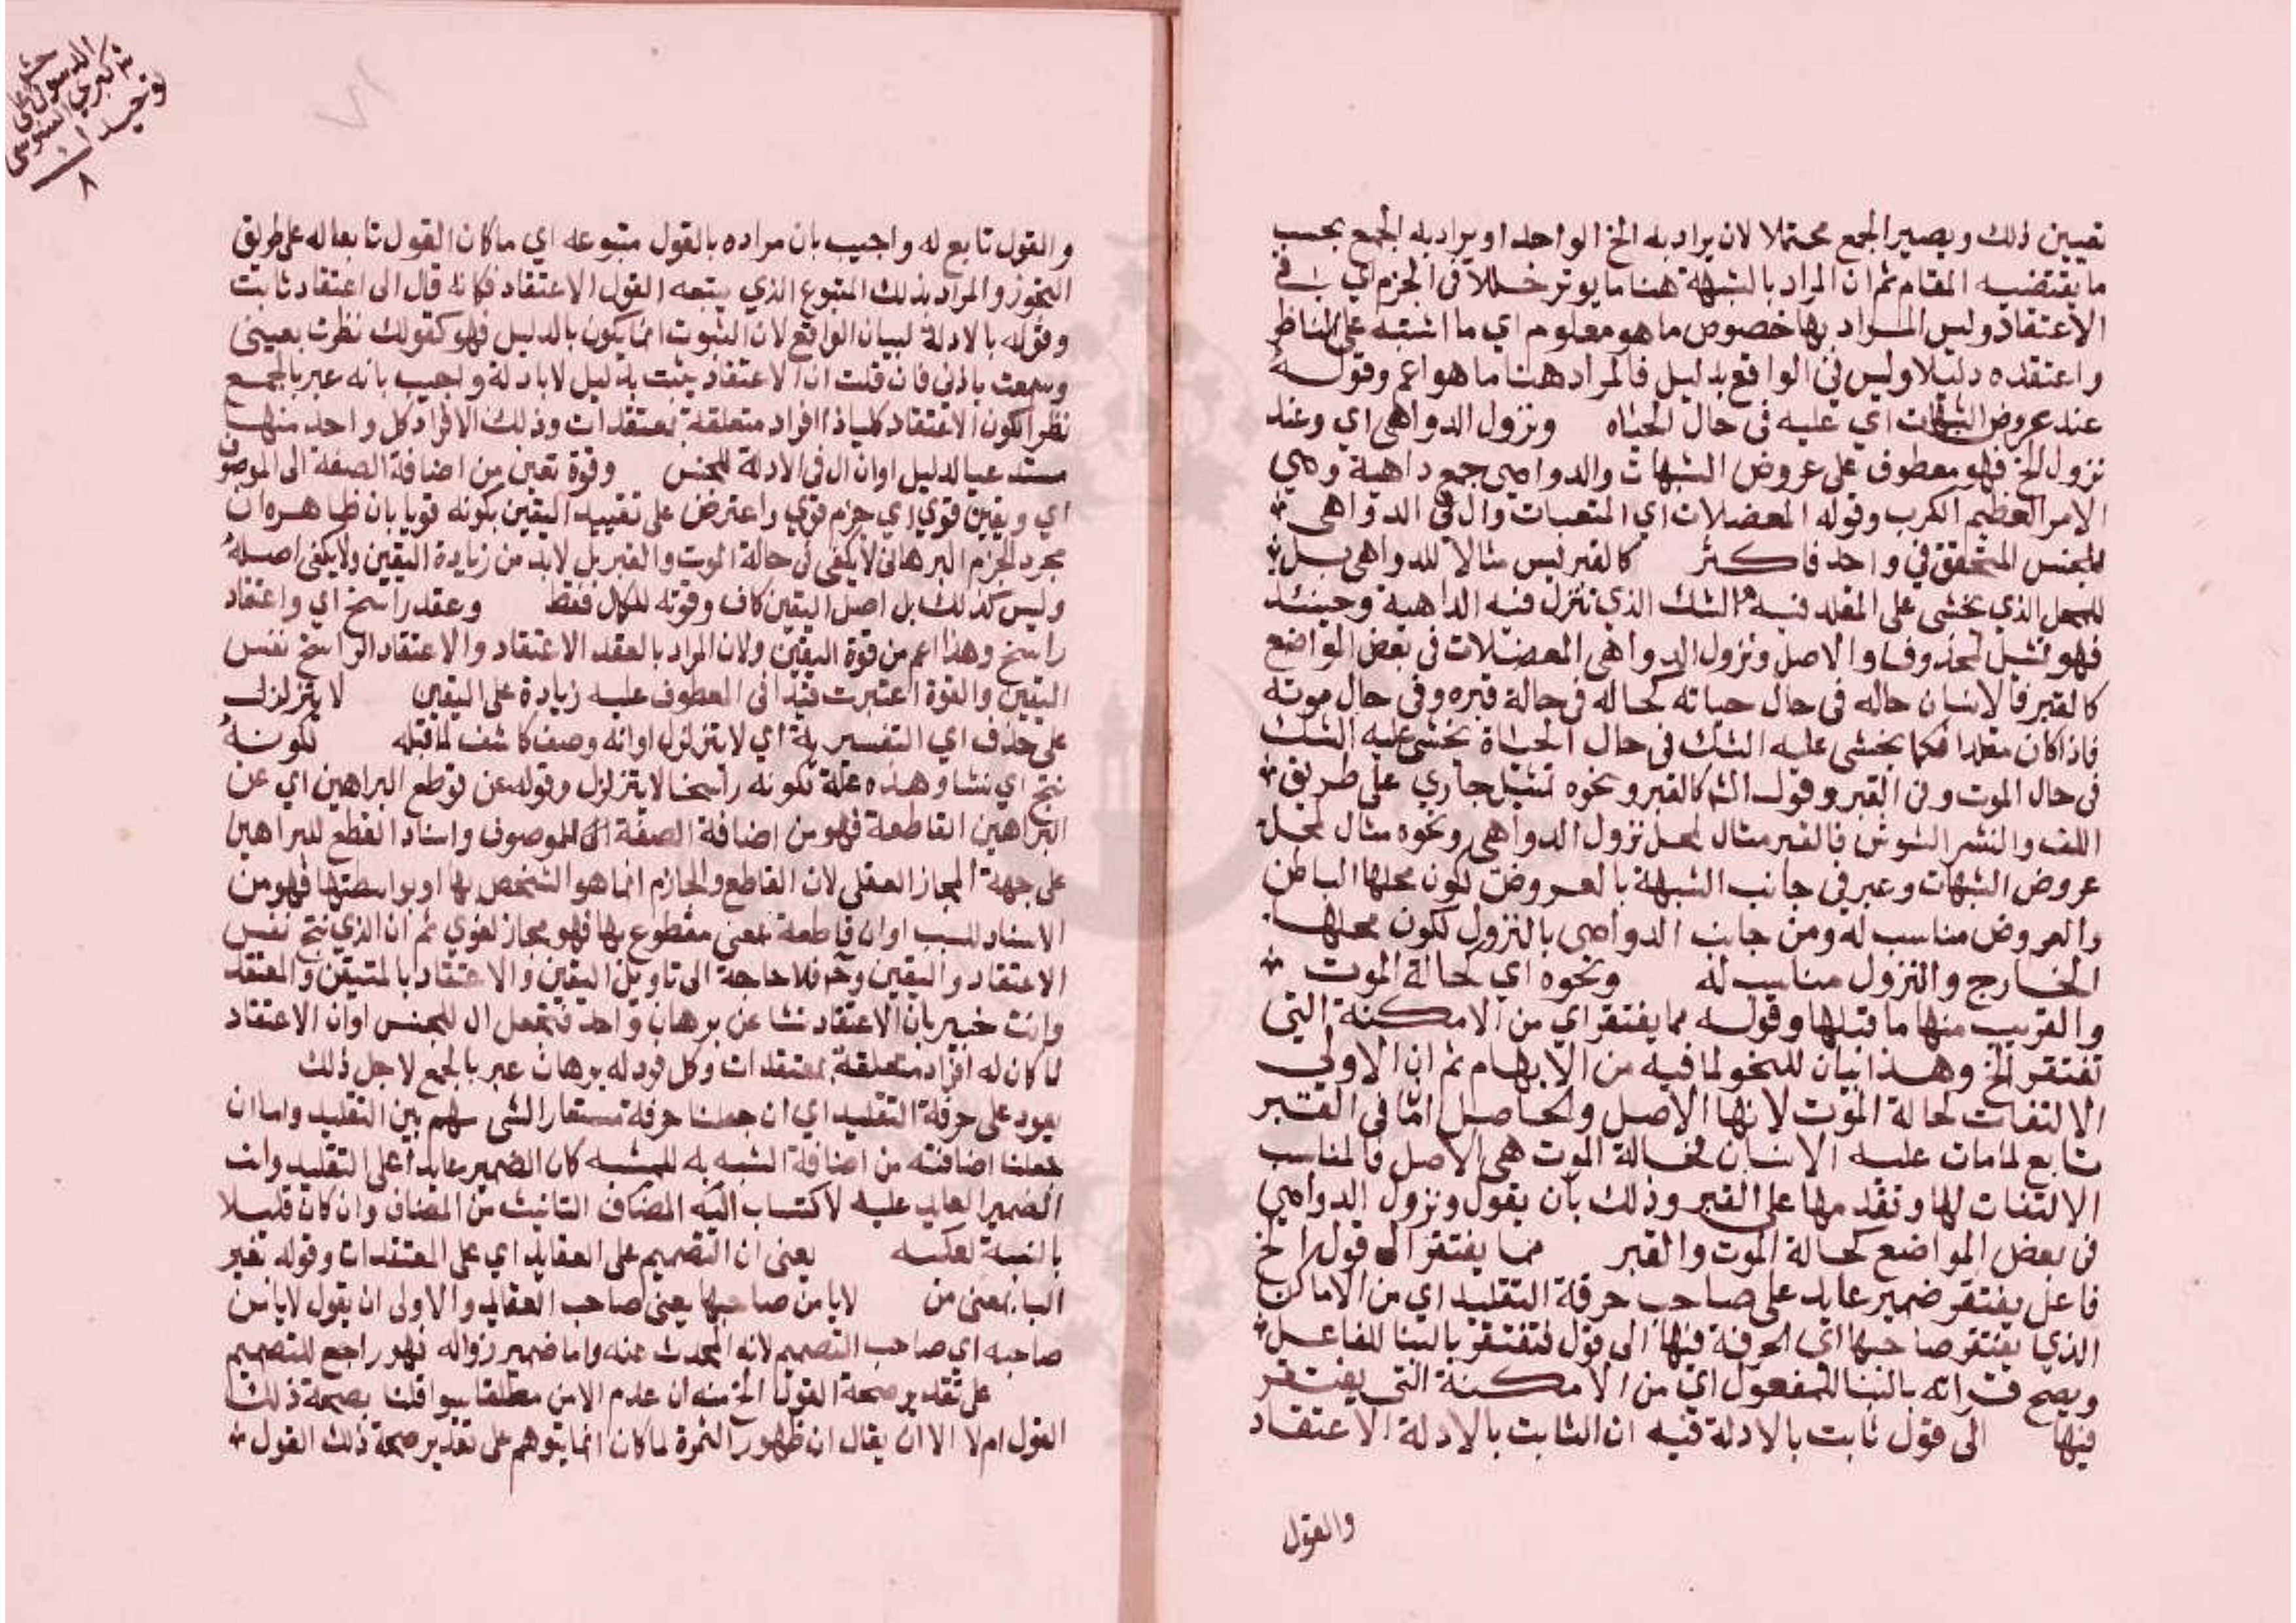 تعيين ذلك ويصير الجمع محتملا لان يراد به الخ الواحد او يراد به الجمع بحسب
ما يقتضيه المقام ثم ان المراد بالشبهة هنا ما يوثر خللا في الجزم اي في
الاعتقاد وليس المراد بها خصوص ما هو معلوم اي ما اشتبه على الناظر
واعتقده دليلا وليس في الواقع بدليل فالمراد هنا ما هو اعم وقوله
عند عروض الشبهات اي عليه في حال الحياه ونزول الدواهي اي وعند
نزول الخ فهو معطوف على عروض الشبهات والدواهي جمع داهية وهي
الامر العظيم الكرب وقوله المعضلات اي المتعبات وال في الدواهي
للجنس المتحقق في واحد فاكثر كالقبر ليس مثالا للدواهي بل
للمحل الذي يخشى على المقلد فيه الشك الذي تنزل فيه الداهية وحينئذ
فهو تمثيل لمحذوف والاصل ونزول الدواهي المعضلات في بعض المواضع
كالقبر فالانسان حاله في حال حياته كحاله في حالة قبره وفي حال موته
فاذا كان مقلدا فكما يخشى عليه الشك في حال الحياة يخشى عليه الشك
في حال الموت وفي القبر وقول الشم كالقبر ونحوه تمثيل جاري على طريق
اللف والنشر المشوش فالقبر مثال لمحل نزول الدواهي ونحوه مثال لمحل
عروض الشبهات وعبر في جانب الشبهة بالعروض لكون محلها الباطن
والعروض مناسب له ومن جانب الدواهي بالنزول لكون محلها
الخارج والنزول مناسب له ونحوه اي كحالة الموت
والقريب منها ما قبلها وقوله مما يفتقر اي من الامكنة التي
تفتقر الخ وهذا بيان للنحو لما فيه من الابهام ثم ان الاولى
الالتفات لحالة الموت لانها الاصل والحاصل اما في القبر
تابع لما مات عليه الانسان فحالة الموت هي الاصل فالمناسب
الالتفات لها وتقدمها على القبر وذلك بان يقول ونزول الدواهي
في بعض المواضع كحالة الموت والقبر مما يفتقر الى قول الخ
فاعل يفتقر ضمير عايد على صاحب حرفة التقليد اي من الاماكن
الذي يفتقر صاحبها اي الحرفة فيها الى قول فتفتقر بالبنا للفاعل
ويصح قراته بالبنا للمفعول اي من الامكنة التي يفتقر
فيها الى قول ثابت بالادلة فيه ان الثابت بالادلة الاعتقاد
والقول
والقول تابع له واجيب بان مراده بالقول متبوعه اي ما كان القول تابعا له على طريق
التجوز والمراد بذلك المتبوع الذي يتبعه القول الاعتقاد فكانه قال الى اعتقاد ثابت
وقوله بالادلة لبيان الواقع لان الثبوت انما يكون بالدليل فهو كقولك نظرت بعيني
وسمعت باذني فان قلت ان الاعتقاد يثبت بدليل لا بادلة واجيب بانه عبر بالجمع
نظرا لكون الاعتقاد كليا ذا افراد متعلقة بمعتقدات وذلك الافراد كل واحد منها
مستدعيا لدليل او ان ال في الادلة للجنس وقوة تعين من اضافة الصفة الى الموصوف
اي ويقين قوي اي جزم قوي واعترض على تقييد اليقين بكونه قويا بان ظاهره ان
مجرد الجزم البرهاني لا يكفي في حالة الموت والقبر بل لابد من زيادة اليقين ولا يكفي اصله
وليس كذلك بل اصل اليقين كاف وقوته للكمال فقط وعقد راسخ اي واعتقاد
راسخ وهذا اعم من قوة اليقين ولان المراد بالعقد الاعتقاد والاعتقاد الراسخ نفس
اليقين والقوة اعتبرت قيدا في المعطوف عليه زيادة على اليقين لا يتزلزل
على حذف اي التفسيرية اي لا يتزلزل او انه وصف كاشف لما قبله لكونه
نتج اي نشا وهذه علة لكونه راسخا لا يتزلزل وقوله عن قوطع البراهين اي عن
البراهين القاطعة فهو من اضافة الصفة الى الموصوف واسناد القطع للبراهين
على جهة المجاز العقلي لان القاطع والجازم انما هو الشخص بها او بواسطتها فهو من
الاسناد للسبب او ان قاطعة بمعنى مقطوع بها فهو مجاز لغوي ثم ان الذي نتج نفس
الاعتقاد واليقين وح فلا حاجة الى تاويل اليقين والاعتقاد بالمتيقن والمعتقد
وانت خبير بان الاعتقاد نشا عن برهان واحد فتجعل ال للجنس او ان الاعتقاد
لما كان له افراد متعلقة بمعتقدات وكل فرد له برهان عبر بالجمع لاجل ذلك
يعود على حرفة التقليد اي ان جعلنا حرفة مستعار الشي سهم بين التقليد واما ان
جعلنا اضافته من اضافة المشبه به للمشبه كان الضمير عايدا على التقليد وانث
الضمير العايد عليه لاكتساب اليه المضاف التانيث من المضاف وان كان قليلا
بالنسبة لعكسه يعني ان التصميم على العقايد اي على المعتقدات وقوله تغير
البا بمعنى من لا يامن صاحبها يعني صاحب العقايد والاولى ان يقول لا يامن
صاحبه اي صاحب التصميم لانه المحدث عنه واما ضمير زواله فهو راجع للتصميم
على تقدير صحة القول الخ منه ان عدم الامن مطلقا سوا قلنا بصحة ذلك
القول ام لا الا ان يقال ان ظهور الثمرة لما كان انما يتوهم على تقدير صحة ذلك القول